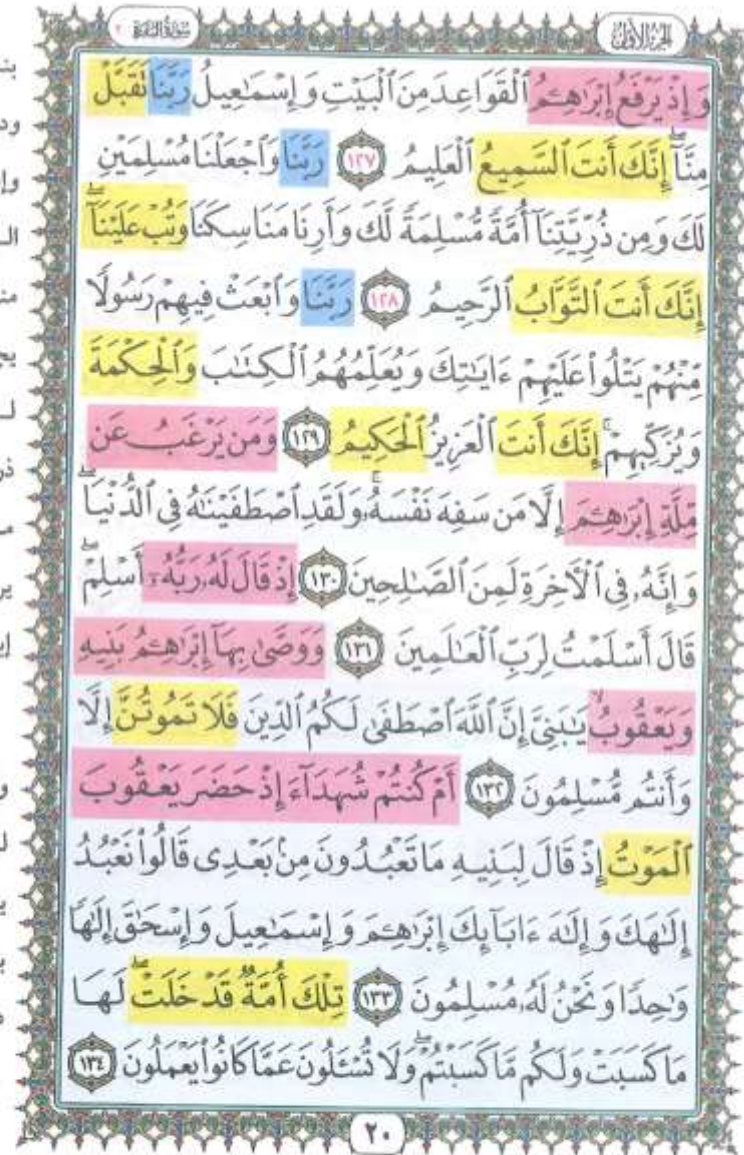 الجزء الأول
سورة البقرة ٢
وَإِذْ يَرْفَعُ إِبْرَٰهِـۧمُ ٱلْقَوَاعِدَ مِنَ ٱلْبَيْتِ وَإِسْمَٰعِيلُ رَبَّنَا تَقَبَّلْ
مِنَّآ ۖ إِنَّكَ أَنتَ ٱلسَّمِيعُ ٱلْعَلِيمُ ١٢٧ رَبَّنَا وَٱجْعَلْنَا مُسْلِمَيْنِ
لَكَ وَمِن ذُرِّيَّتِنَآ أُمَّةً مُّسْلِمَةً لَّكَ وَأَرِنَا مَنَاسِكَنَا وَتُبْ عَلَيْنَآ ۖ
إِنَّكَ أَنتَ ٱلتَّوَّابُ ٱلرَّحِيمُ ١٢٨ رَبَّنَا وَٱبْعَثْ فِيهِمْ رَسُولًا
مِّنْهُمْ يَتْلُوا۟ عَلَيْهِمْ ءَايَٰتِكَ وَيُعَلِّمُهُمُ ٱلْكِتَٰبَ وَٱلْحِكْمَةَ
وَيُزَكِّيهِمْ ۚ إِنَّكَ أَنتَ ٱلْعَزِيزُ ٱلْحَكِيمُ ١٢٩ وَمَن يَرْغَبُ عَن
مِّلَّةِ إِبْرَٰهِـۧمَ إِلَّا مَن سَفِهَ نَفْسَهُۥ ۚ وَلَقَدِ ٱصْطَفَيْنَٰهُ فِى ٱلدُّنْيَا ۖ
وَإِنَّهُۥ فِى ٱلْـَٔاخِرَةِ لَمِنَ ٱلصَّٰلِحِينَ ١٣٠ إِذْ قَالَ لَهُۥ رَبُّهُۥٓ أَسْلِمْ ۖ
قَالَ أَسْلَمْتُ لِرَبِّ ٱلْعَٰلَمِينَ ١٣١ وَوَصَّىٰ بِهَآ إِبْرَٰهِـۧمُ بَنِيهِ
وَيَعْقُوبُ يَٰبَنِىَّ إِنَّ ٱللَّهَ ٱصْطَفَىٰ لَكُمُ ٱلدِّينَ فَلَا تَمُوتُنَّ إِلَّا
وَأَنتُم مُّسْلِمُونَ ١٣٢ أَمْ كُنتُمْ شُهَدَآءَ إِذْ حَضَرَ يَعْقُوبَ
ٱلْمَوْتُ إِذْ قَالَ لِبَنِيهِ مَا تَعْبُدُونَ مِنۢ بَعْدِى قَالُوا۟ نَعْبُدُ
إِلَٰهَكَ وَإِلَٰهَ ءَابَآئِكَ إِبْرَٰهِـۧمَ وَإِسْمَٰعِيلَ وَإِسْحَٰقَ إِلَٰهًا
وَٰحِدًا وَنَحْنُ لَهُۥ مُسْلِمُونَ ١٣٣ تِلْكَ أُمَّةٌ قَدْ خَلَتْ ۖ لَهَا
مَا كَسَبَتْ وَلَكُم مَّا كَسَبْتُمْ ۖ وَلَا تُسْـَٔلُونَ عَمَّا كَانُوا۟ يَعْمَلُونَ ١٣٤
٢٠